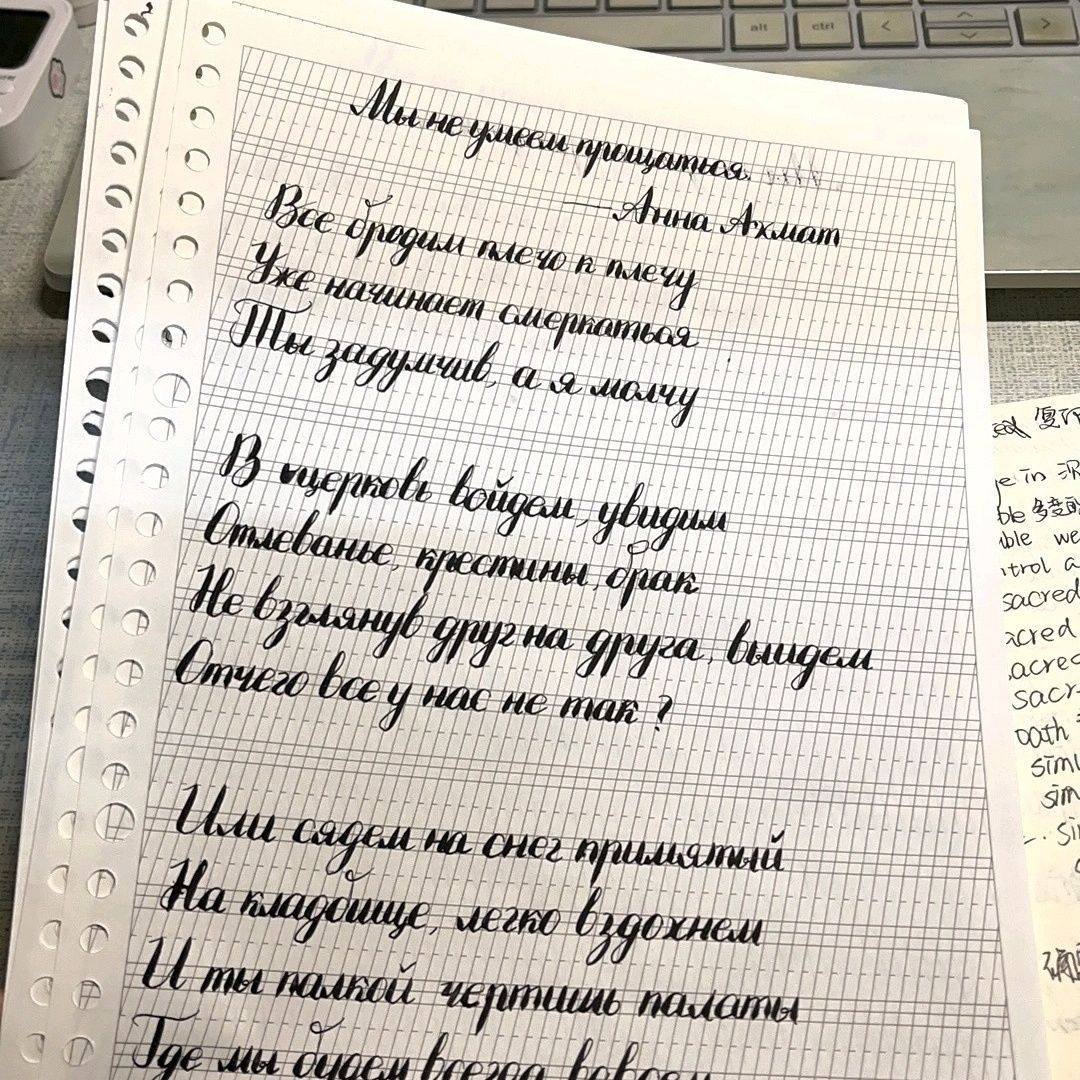 alt
ctrl
Мы не умеем прощаться.
— Анна Ахмат
Все бродим плечо к плечу
Уже начинает смеркаться
Ты задумчив, а я молчу
В церковь войдем, увидим
Отпеванье, крестины, брак
Не взглянув друг на друга, выйдем
Отчего все у нас не так?
Или сядем на снег примятый
На кладбище, легко вздохнем
И ты палкой чертишь палаты
Где мы будем всегда
in
able
we
sacred
acred
sacr
oath